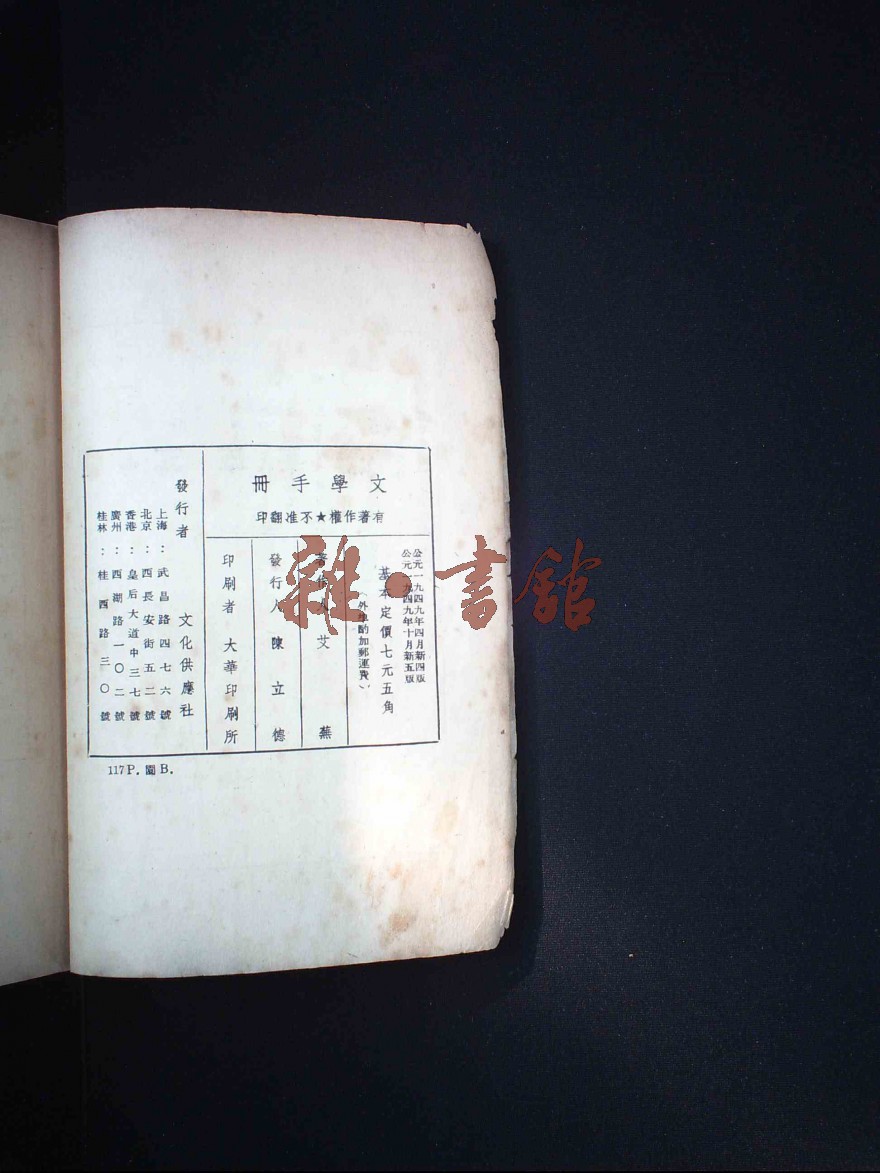 文學手冊
有著作權★不准翻印
公元一九四九年四月新四版
公元一九四九年十月新五版
基本定價七元五角
(外埠酌加郵運費)
著作人 艾蕪
發行人 陳立德
印刷者 大華印刷所
發行者 文化供應社
上海:武昌路四七六號
北京:西長安街五二號
香港:皇后大道中三七號
廣州:西湖路一〇二號
桂林:桂西路三〇號
117P. 圓B.
雜·書館